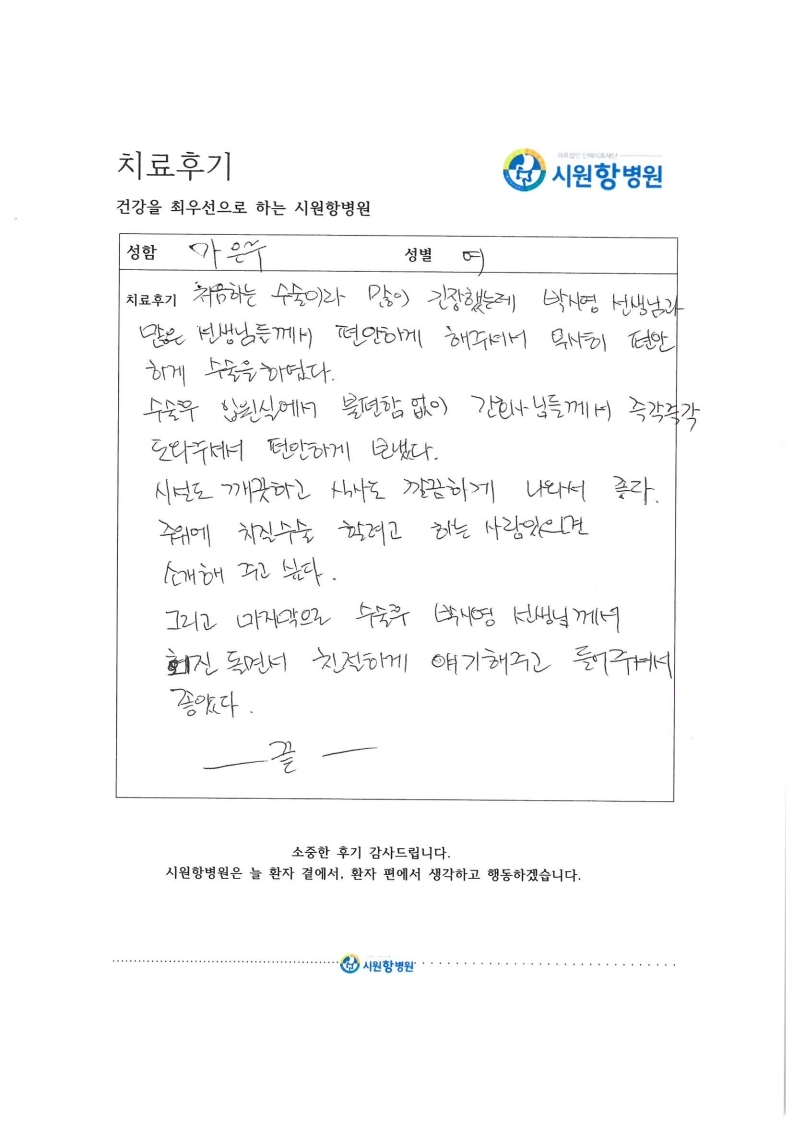 치료후기
시원항병원
건강을 최우선으로 하는 시원항병원
성함 가은주 성별 여
치료후기 처음하는 수술이라 많이 긴장했는데 박시영 선생님과
많은 선생님들께서 편안하게 해주셔서 무사히 편안
하게 수술을 하였다.
수술후 입원실에서 불편함 없이 간호사님들께서 즉각즉각
도와주셔서 편안하게 보냈다.
시설도 깨끗하고 식사도 깔끔하게 나와서 좋다.
주위에 치질수술 할려고 하는 사람있으면
소개해 주고 싶다.
그리고 마지막으로 수술후 박시영 선생님께서
회진 돌면서 친절하게 얘기해주고 들어주셔서
좋았다.
— 끝 —
소중한 후기 감사드립니다.
시원항병원은 늘 환자 곁에서, 환자 편에서 생각하고 행동하겠습니다.
시원항병원